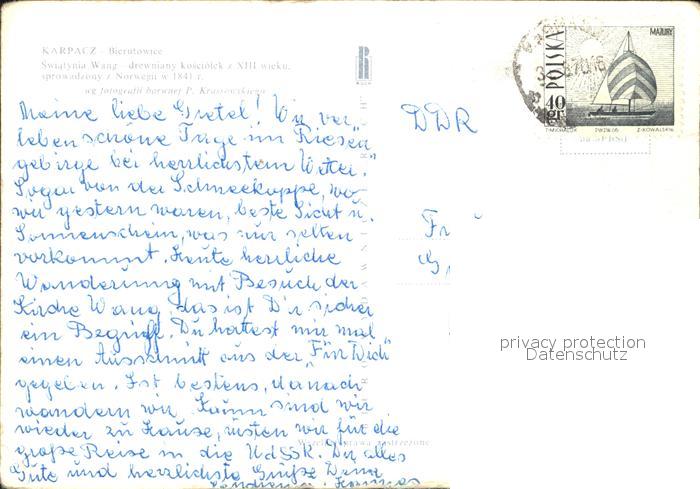 KARPACZ – Bierutowice
Świątynia Wang – drewniany kościółek z XIII wieku,
sprowadzony z Norwegii w 1841 r.
wg fotografii barwnej P. Krassowskiego
Meine liebe Gretel! Wir ver-
leben schöne Tage im Riesen
gebirge bei herrlichstem Wetter.
Sogar von der Schneekoppe, wo
wir gestern waren, beste Sicht u.
Sonnenschein, was nur selten
vorkommt. Heute herrliche
Wanderung mit Besuch der
Kirche Wang, das ist Dir sicher
ein Begriff. Du hattest mir mal
einen Ausschnitt aus der "Für Dich"
gegeben. Ist bestens, danach
wandern wir. Kaum sind wir
wieder zu Hause, rüsten wir für die
große Reise in die UdSSR. Dir alles
Gute und herzlichste Grüße Deine
DDR
Fr
G
POLSKA
MAZURY
40
gr
T.MICHALUK PWPW.66 Z.KOWALSKI
privacy protection
Datenschutz